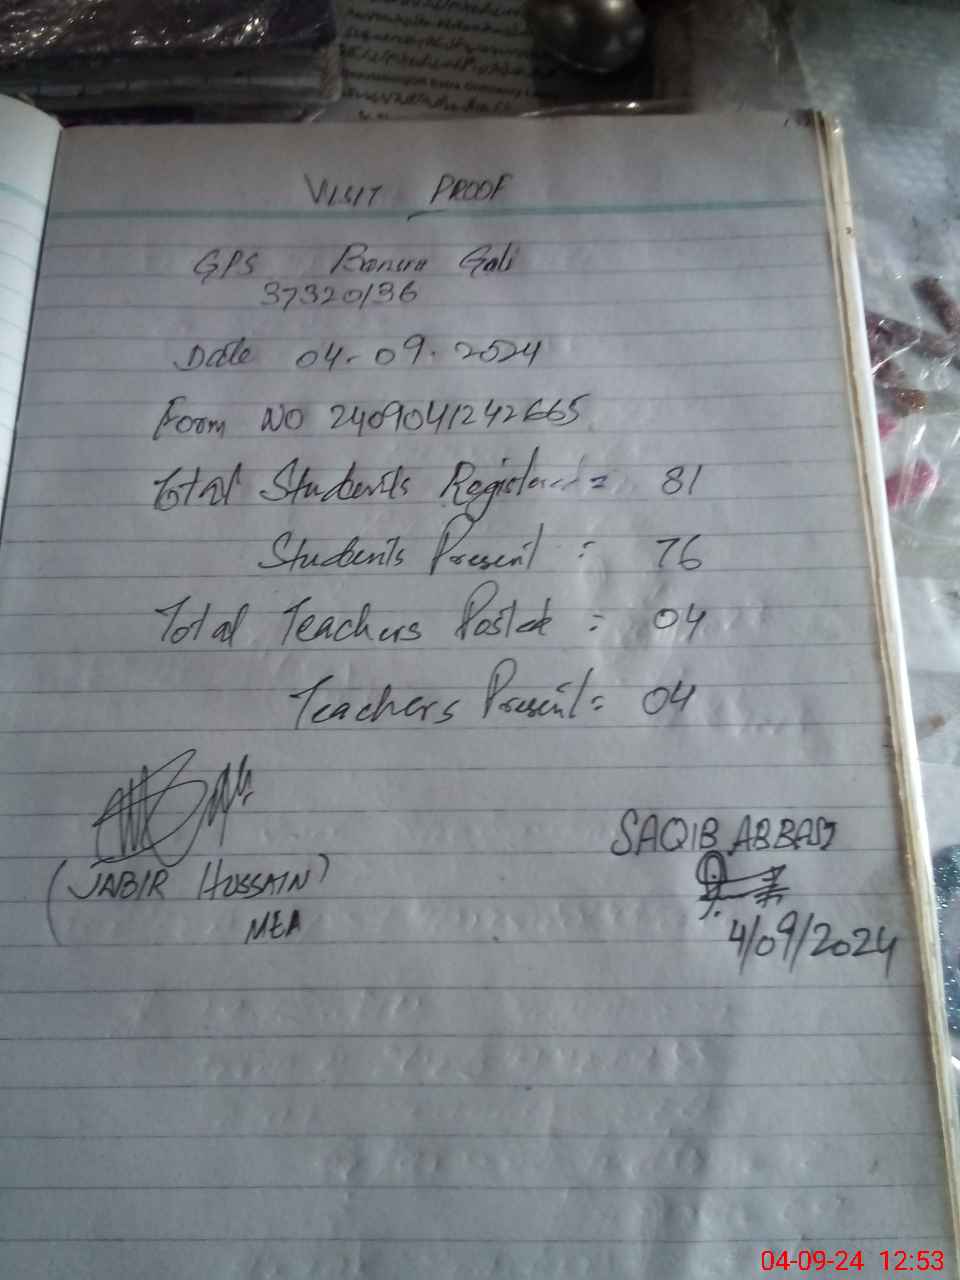 VISIT PROOF
GPS Gali
37320136
Date 04-09-2024
Form NO 2409041242665
Total Students Registered = 81
Students Present = 76
Total Teachers Posted = 04
Teachers Present = 04
SAQIB ABBASI
(JABIR HUSSAIN)
MEA
4/09/2024
04-09-24 12:53